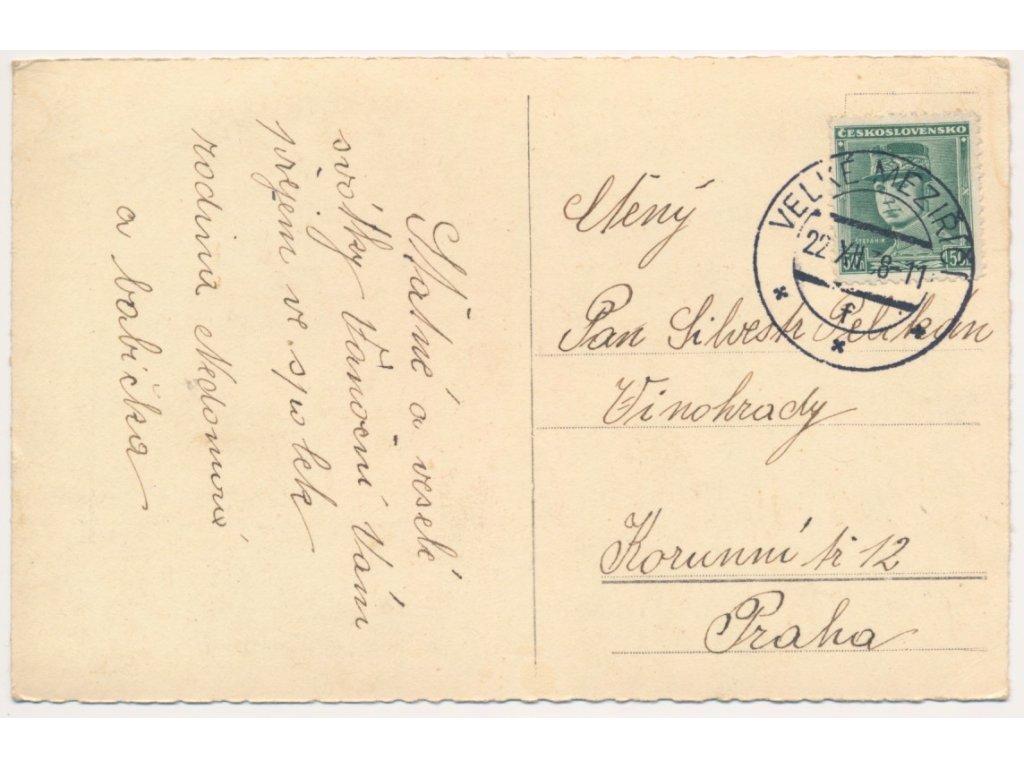 Šťastné a veselé
svátky Vánoční Vám
přejem ve spolek
rodina Nedomová
a babička
ČESKOSLOVENSKO
ŠTEFÁNIK
VELKÉ MEZIŘÍČÍ
22 XII 8-11
f
Ctěný
Pan Silvestr Pelikán
Vinohrady
Korunní tř 12
Praha